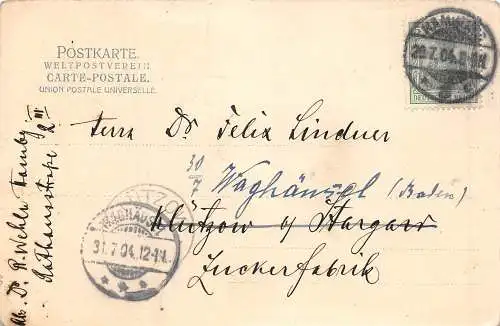 POSTKARTE.
WELTPOSTVEREIN
CARTE-POSTALE.
UNION POSTALE UNIVERSELLE.
29.7.04.
Herrn Dr. Felix Lindner
30/7
Waghäusel (Baden)
Klützow a/ Stargard
Zuckerfabrik
WAGHÄUSEL
31.7.04.12-1N.
Ab. Dr. R. Wehle
Rathausstrasse 2 III